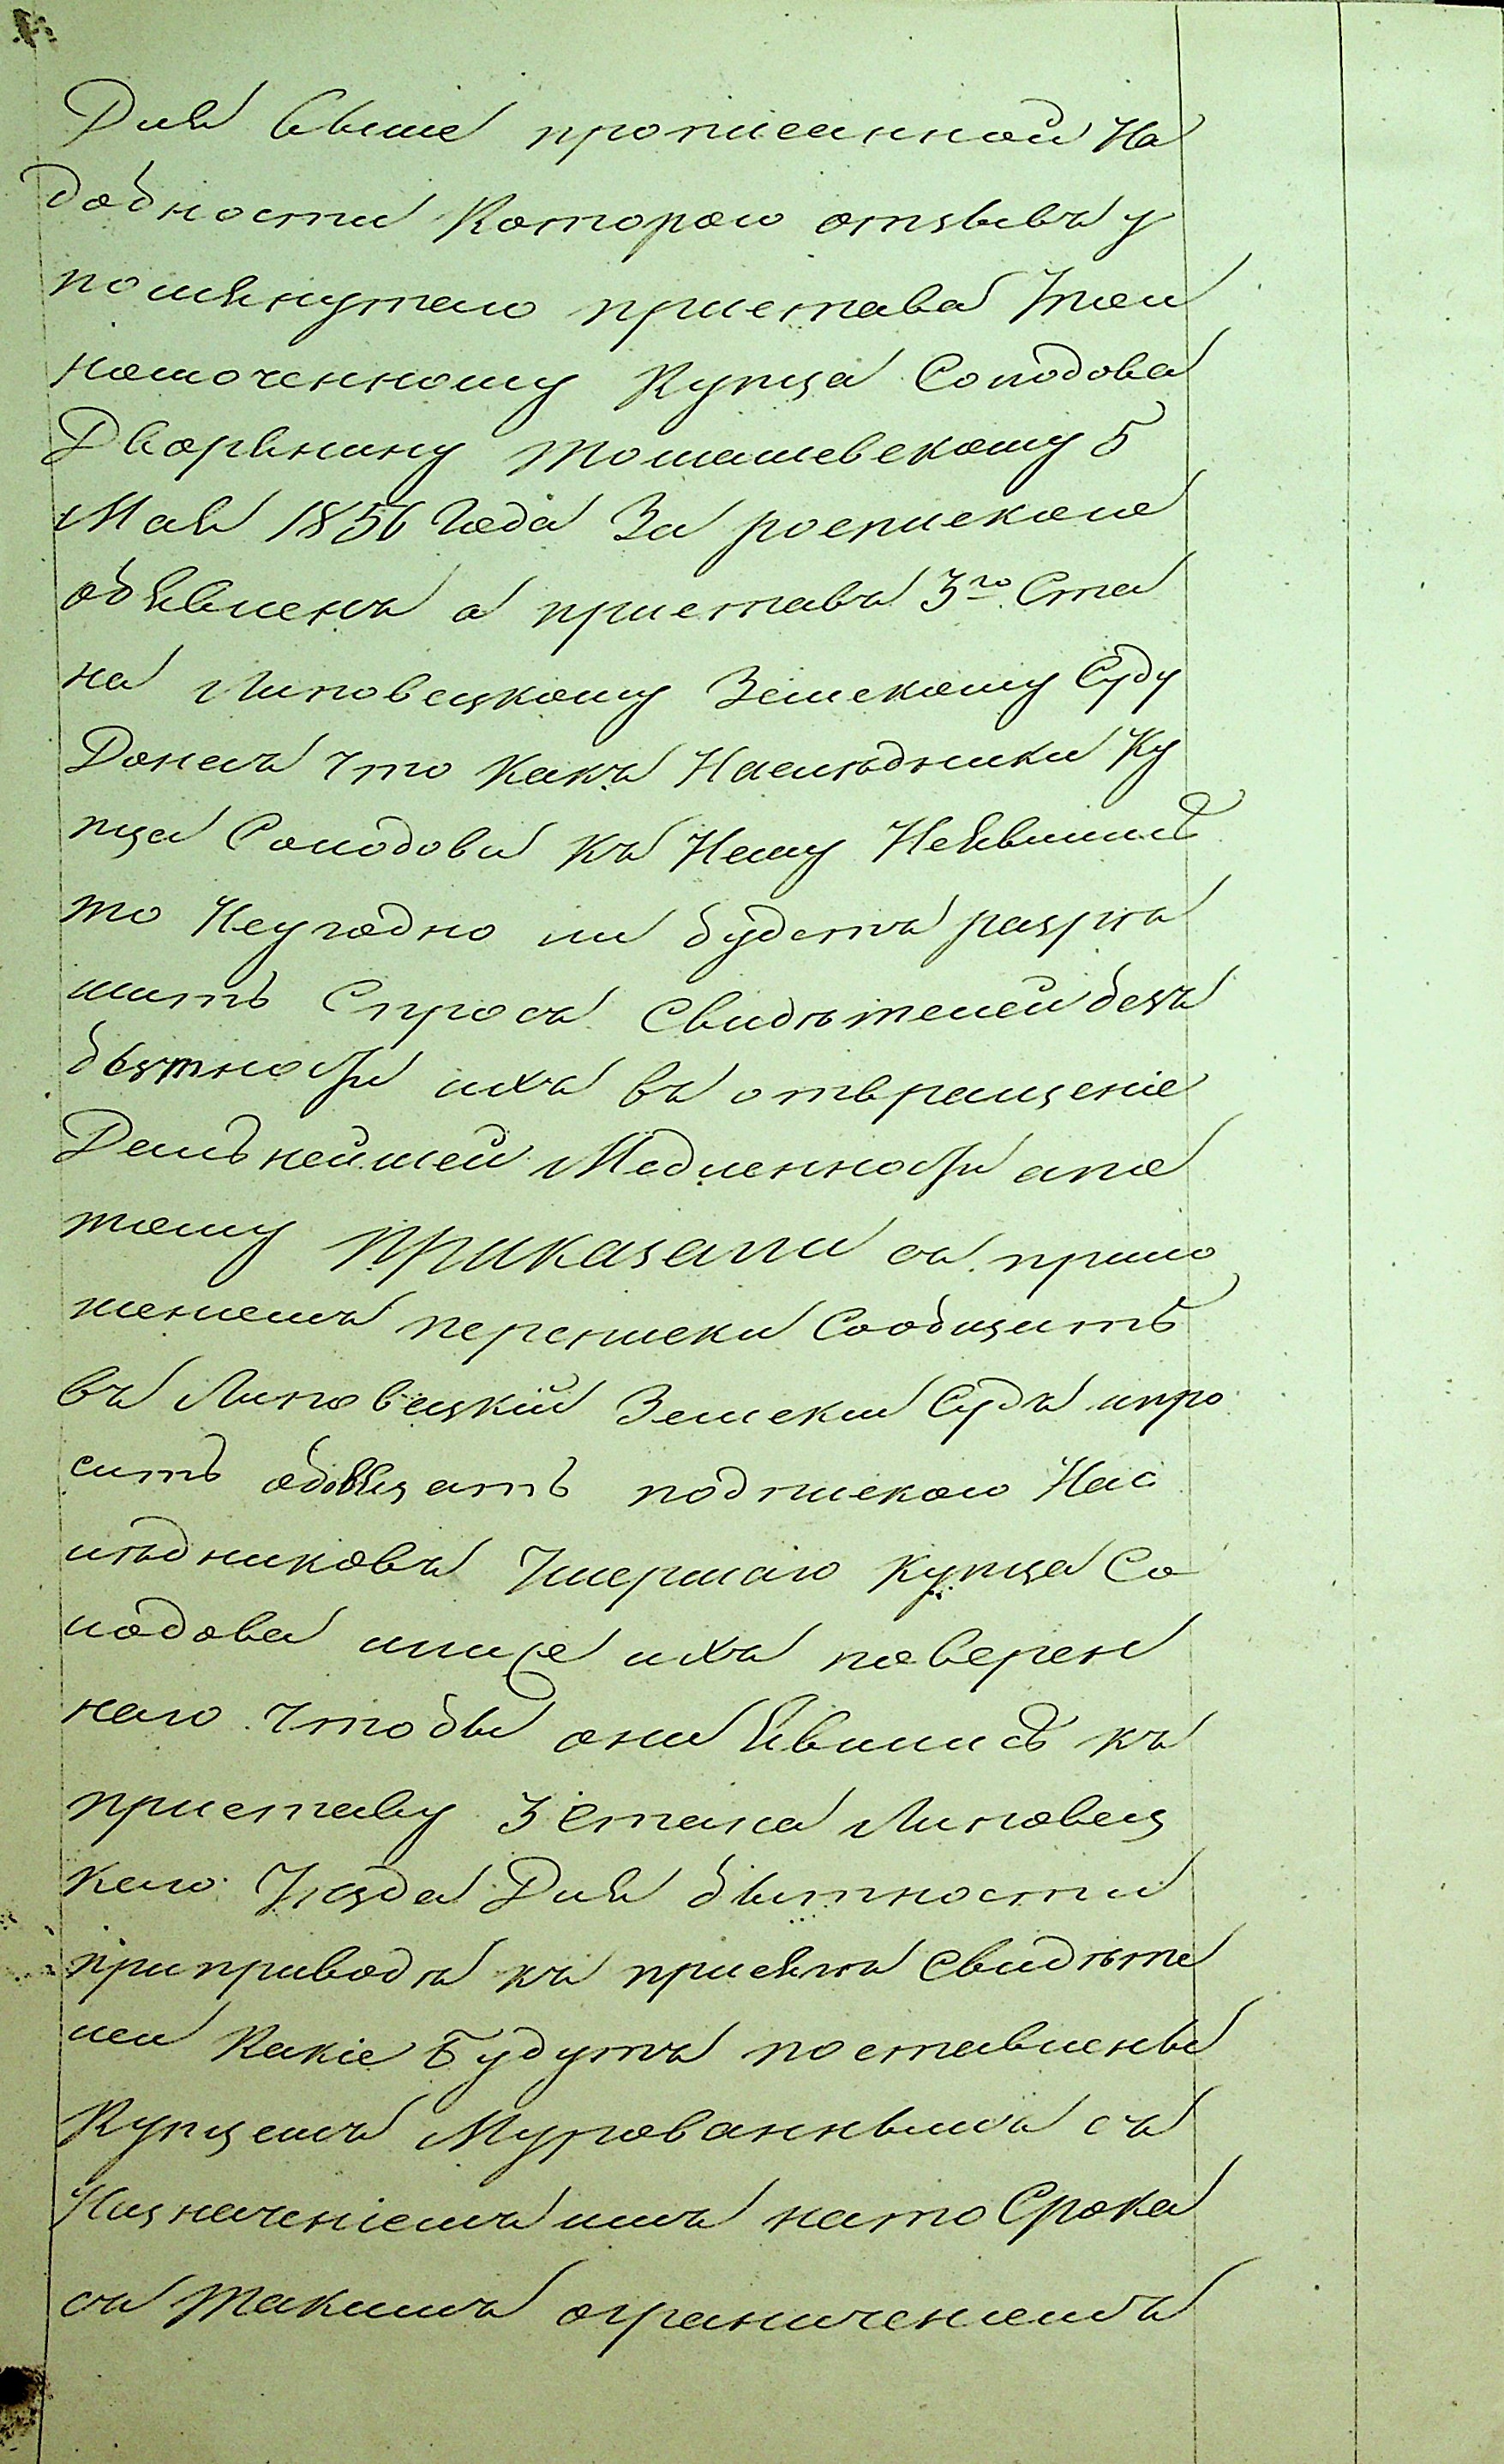 Для выше прописанной На
добности Которого отзывъ у
помянутаго пристава Упол
номоченному Купца Солодова
Дворянину Томашевскому 5
Мая 1856 Года За роспискою
объявленъ а приставъ 3го Ста
на Липовецкому Земскому Суду
Донесъ что какъ Наследники Ку
пца Солодова къ Нему Неявились
то Неугодно ли будетъ разрѣ
шить Спросъ Свидѣтелей безъ
бытности ихъ въ отвращеніе
Дальнейшей Медленности апо
тому приказали съ прило
жениемъ переписки Сообщить
въ Липовецкій Земский Судъ ипро
сить обовязать подпискою Нас
лѣдниковъ Умершаго купца Со
лодова или же ихъ поверен
наго чтобы они Явились къ
приставу 3 Стана Липовец
каго Уезда Для бытности
при приводѣ къ присягѣ Свидѣте
лей Какіе Будутъ поставлены
Купцемъ Мурованнымъ съ
Назначеніемъ имъ нато Срока
съ Такимъ ограничениемъ